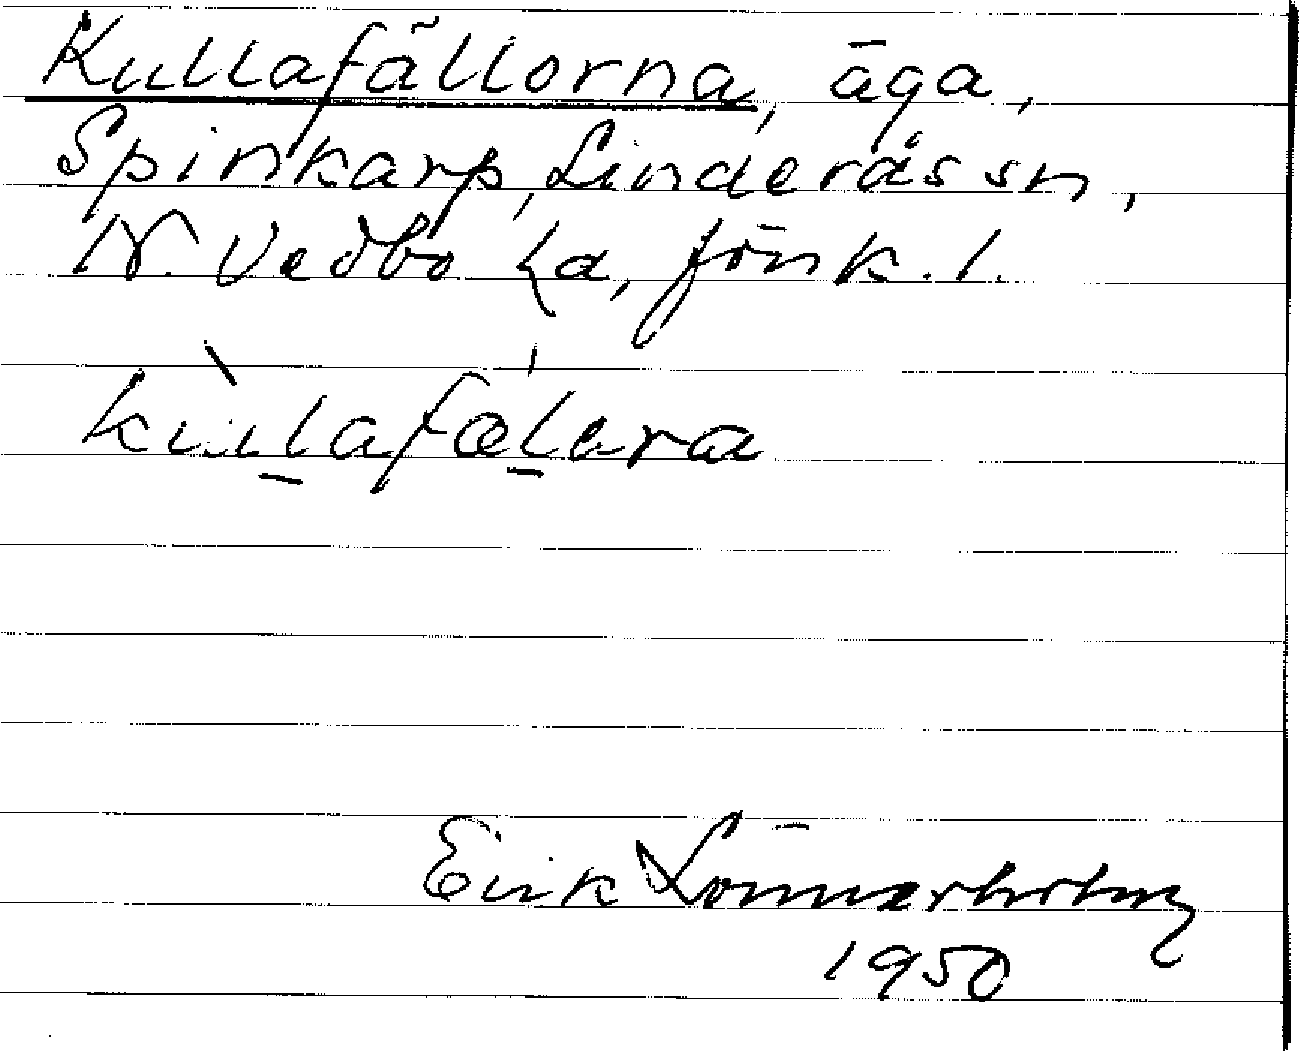 Kullafällorna, äga,
Spinkarp, Linderås sn,
N. Vedbo hd, Jönk. l.
kullafælera
Erik Lönnerholm
1950